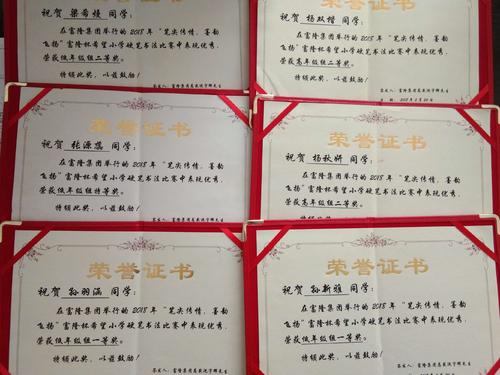 祝贺 梁希熳 同学：
在富隆集团举行的2018年“笔尖传情，墨韵
飞扬”富隆林希望小学硬笔书法比赛中表现优秀，
荣获低年级组二等奖。
特颁此奖，以兹鼓励！
祝贺 杨双楷 同学：
在富隆集团举行的2018年“笔尖传情，墨韵
飞扬”富隆林希望小学硬笔书法比赛中表现优秀，
荣获高年级组二等奖。
特颁此奖，以兹鼓励！
荣誉证书
祝贺 张源淇 同学：
在富隆集团举行的2018年“笔尖传情，墨韵
飞扬”富隆林希望小学硬笔书法比赛中表现优秀，
荣获低年级组特等奖。
特颁此奖，以兹鼓励！
荣誉证书
祝贺 杨秋妍 同学：
在富隆集团举行的2018年“笔尖传情，墨韵
飞扬”富隆林希望小学硬笔书法比赛中表现优秀，
荣获高年级组二等奖。
特颁此奖，以兹鼓励！
荣誉证书
祝贺 孙羽涵 同学：
在富隆集团举行的2018年“笔尖传情，墨韵
飞扬”富隆林希望小学硬笔书法比赛中表现优秀，
荣获低年级组一等奖。
特颁此奖，以兹鼓励！
荣誉证书
祝贺 孙新雅 同学：
在富隆集团举行的2018年“笔尖传情，墨韵
飞扬”富隆林希望小学硬笔书法比赛中表现优秀，
荣获低年级组一等奖。
特颁此奖，以兹鼓励！